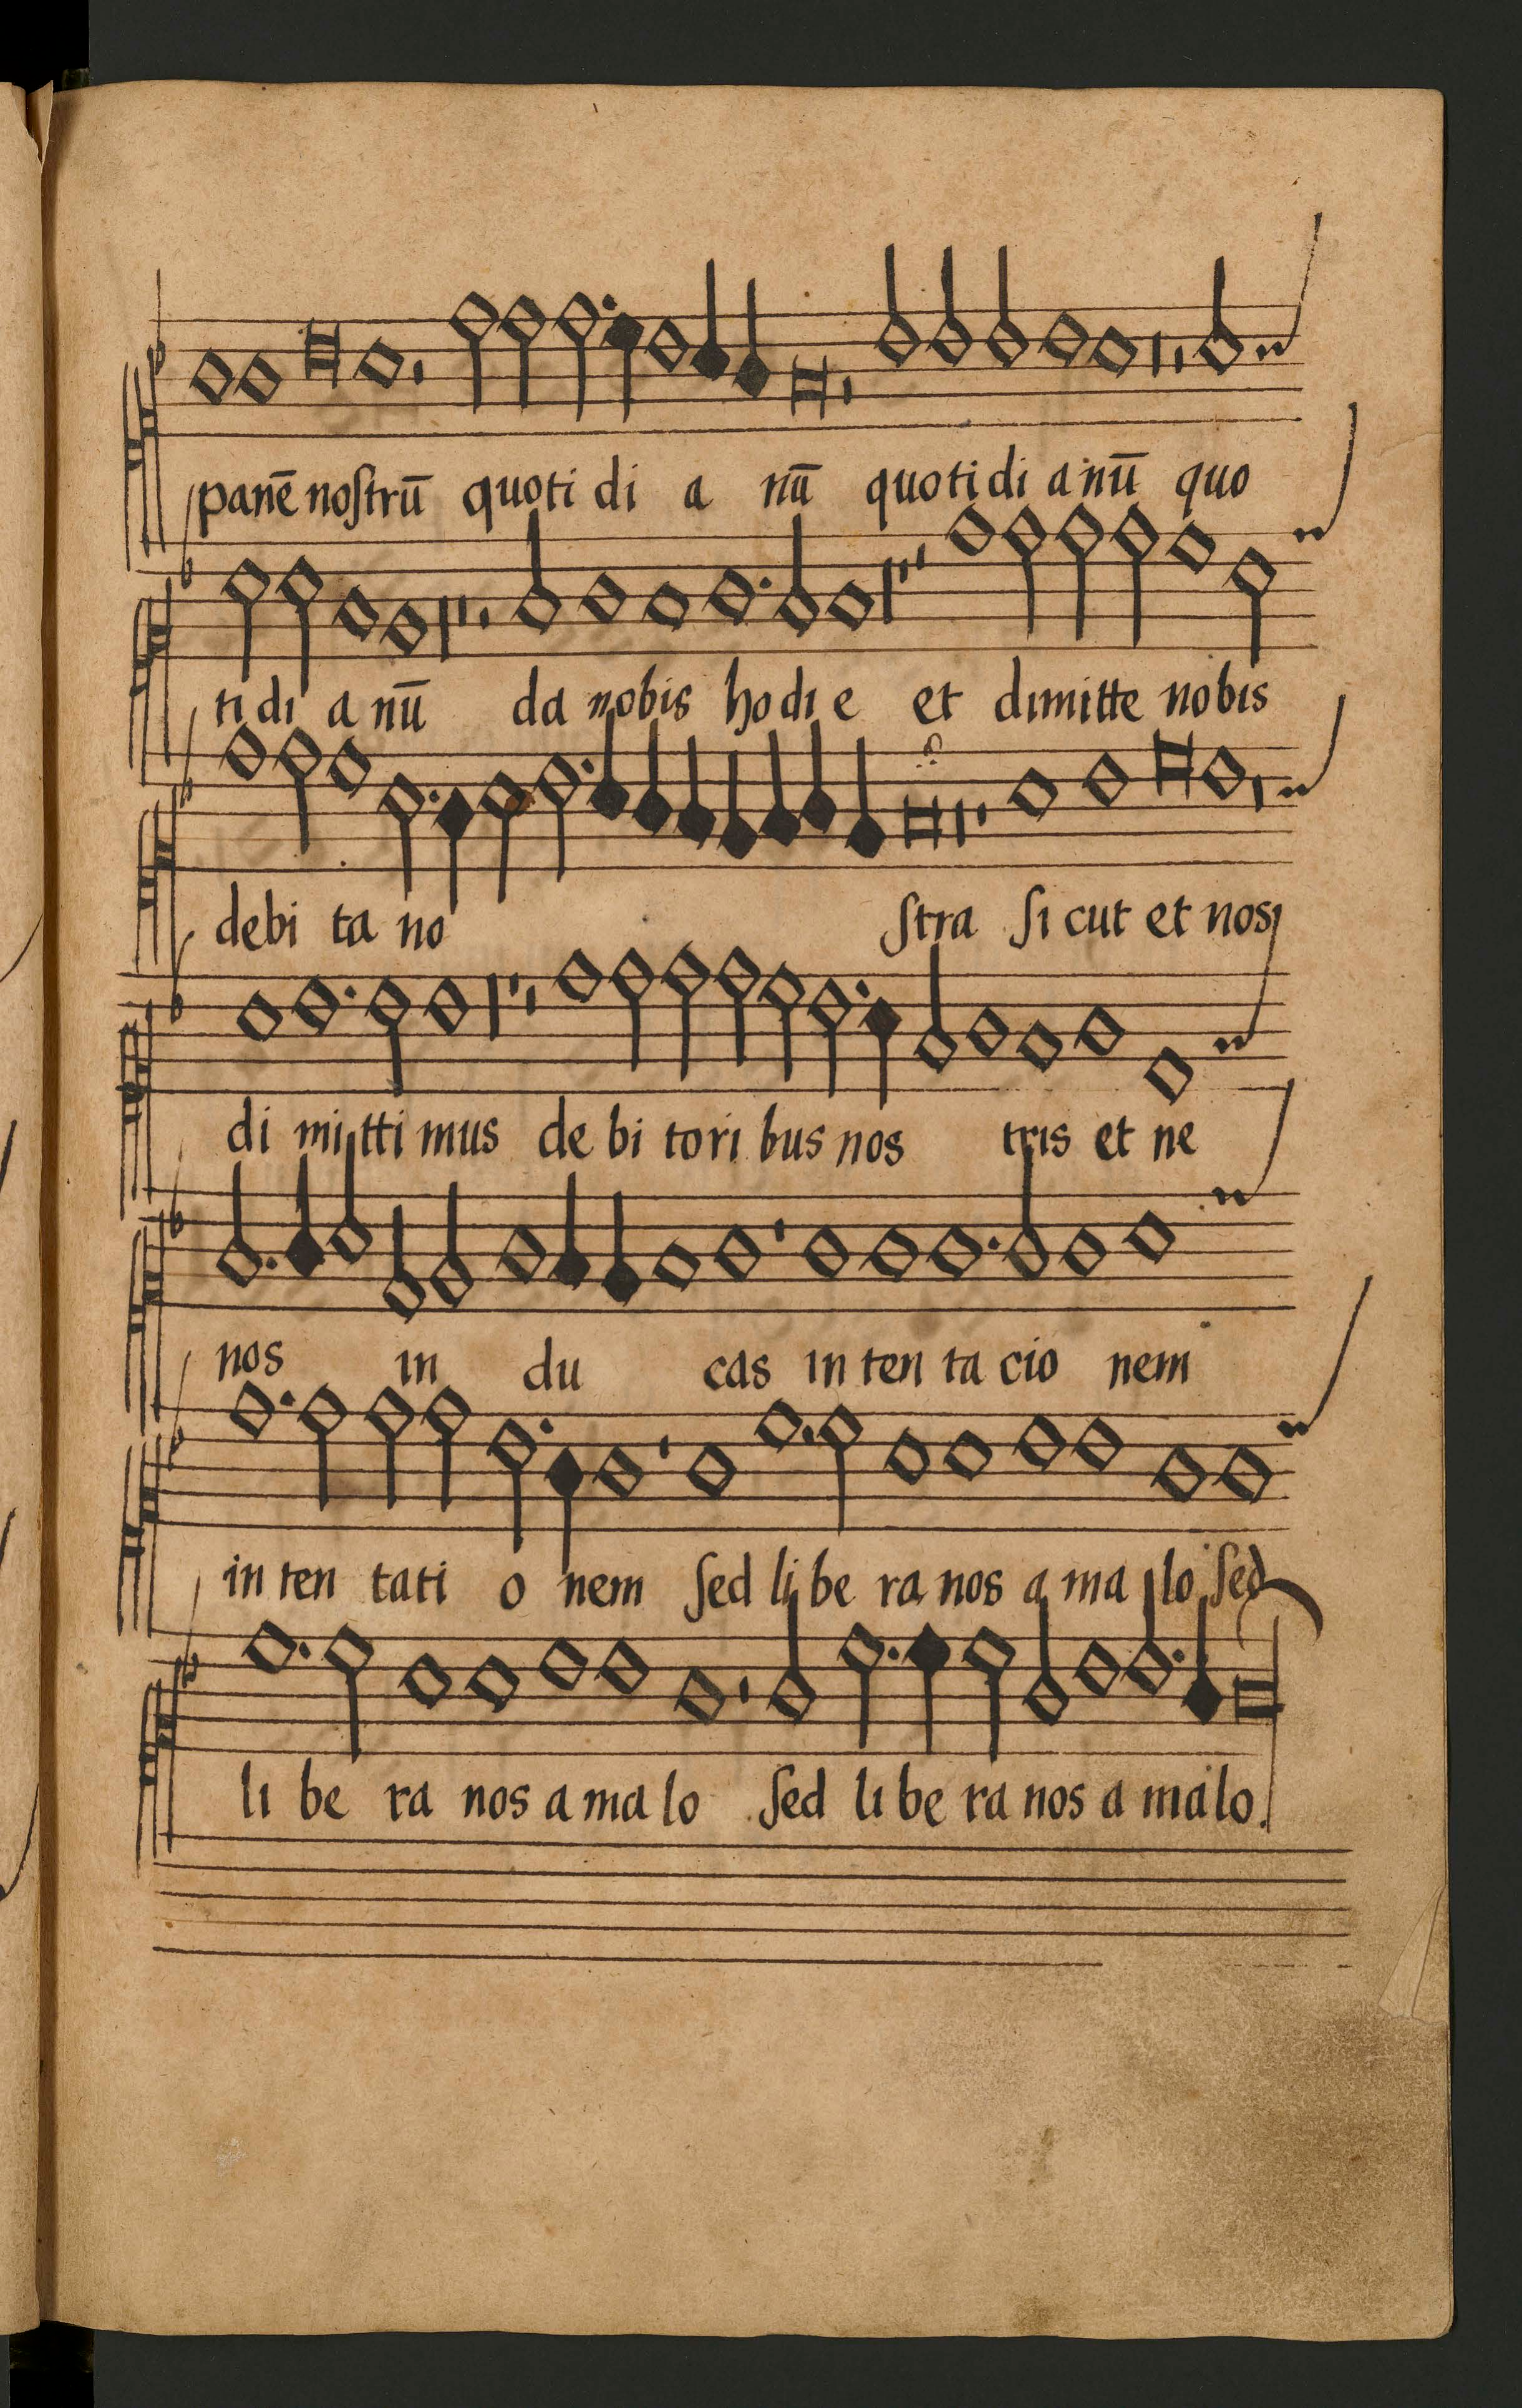 panē noſtrū quoti di a nū quotidi a nū quo
ti di a nū da nobis hodie et dimitte nobis
debi ta no ſtra ſi cut et nos
di mi tti mus de bi tori bus nos tris et ne
nos in du cas in ten ta cio nem
in ten tati o nem ſed li be ra nos a ma lo ſed
li be ra nos a ma lo ſed li be ra nos a malo.